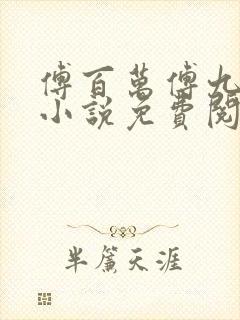 傅百萬傅九
小說免費閱
半簾天涯